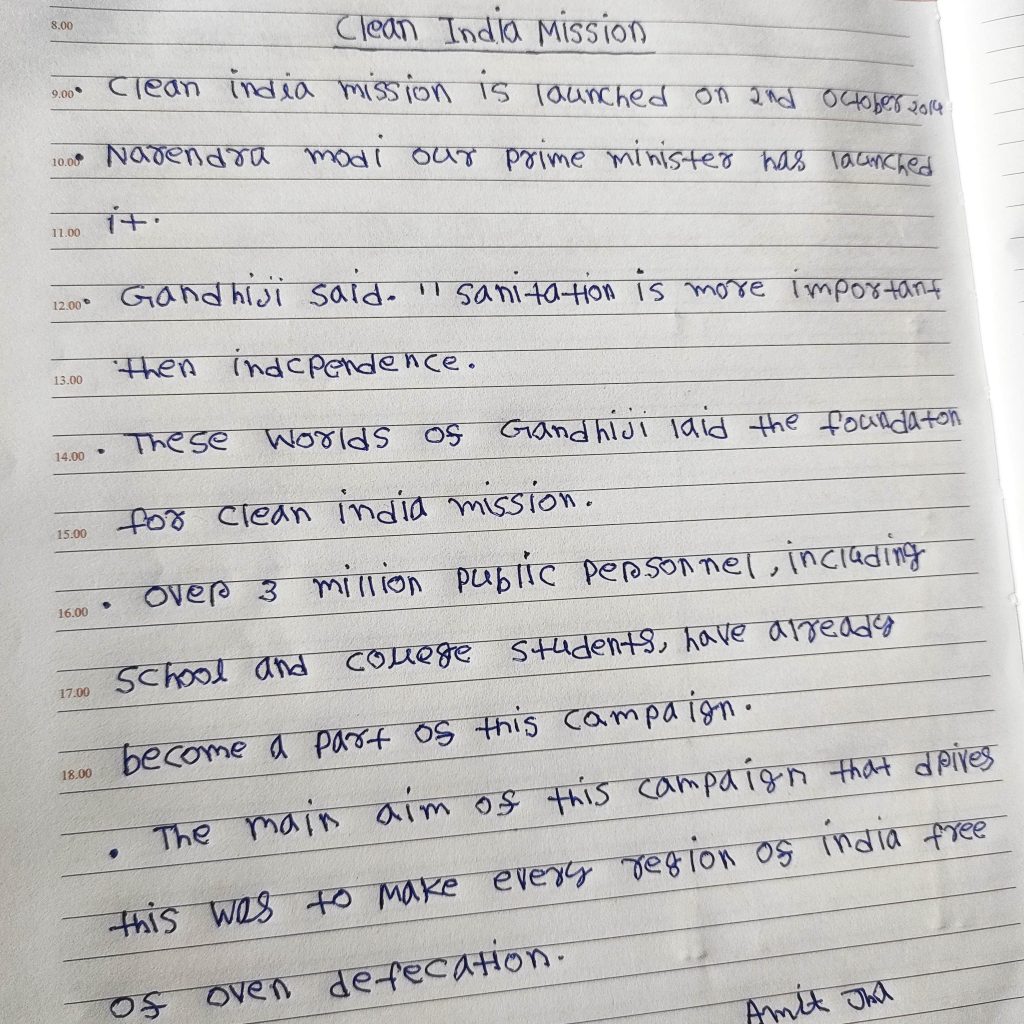 Clean India Mission
8.00
9.00 • Clean india mission is launched on 2nd October 2014
10.00 • Narendra modi our prime minister has launched
11.00 it.
12.00 • Gandhiji said. " sanitation is more important
13.00 then independence.
14.00 • These Worlds of Gandhiji laid the foundaton
15.00 for clean india mission.
16.00 • over 3 million public personnel, including
17.00 School and college students, have already
18.00 become a part of this campaign.
• The main aim of this campaign that drives
this was to make every region of india free
of oven defecation.
Amit Jha